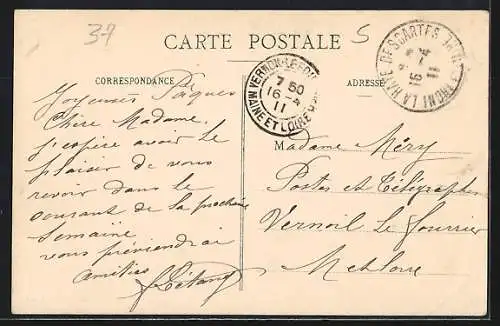 37
5
CARTE POSTALE
CORRESPONDANCE
ADRESSE
VERNOIL-LE-FOU
7 50
16 - 4
11
MAINE ET LOIRE
LA HAYE DESCARTES
16 - 4
11
Joyeuses Pâques
Chère Madame,
J'espère avoir le
plaisir de vous
revoir dans le
courant de la prochaine
semaine
vous préviendrai
Amitiés
Létang
Madame Méry
Postes et Télégraphes
Vernoil le Fourrier
M et Loire